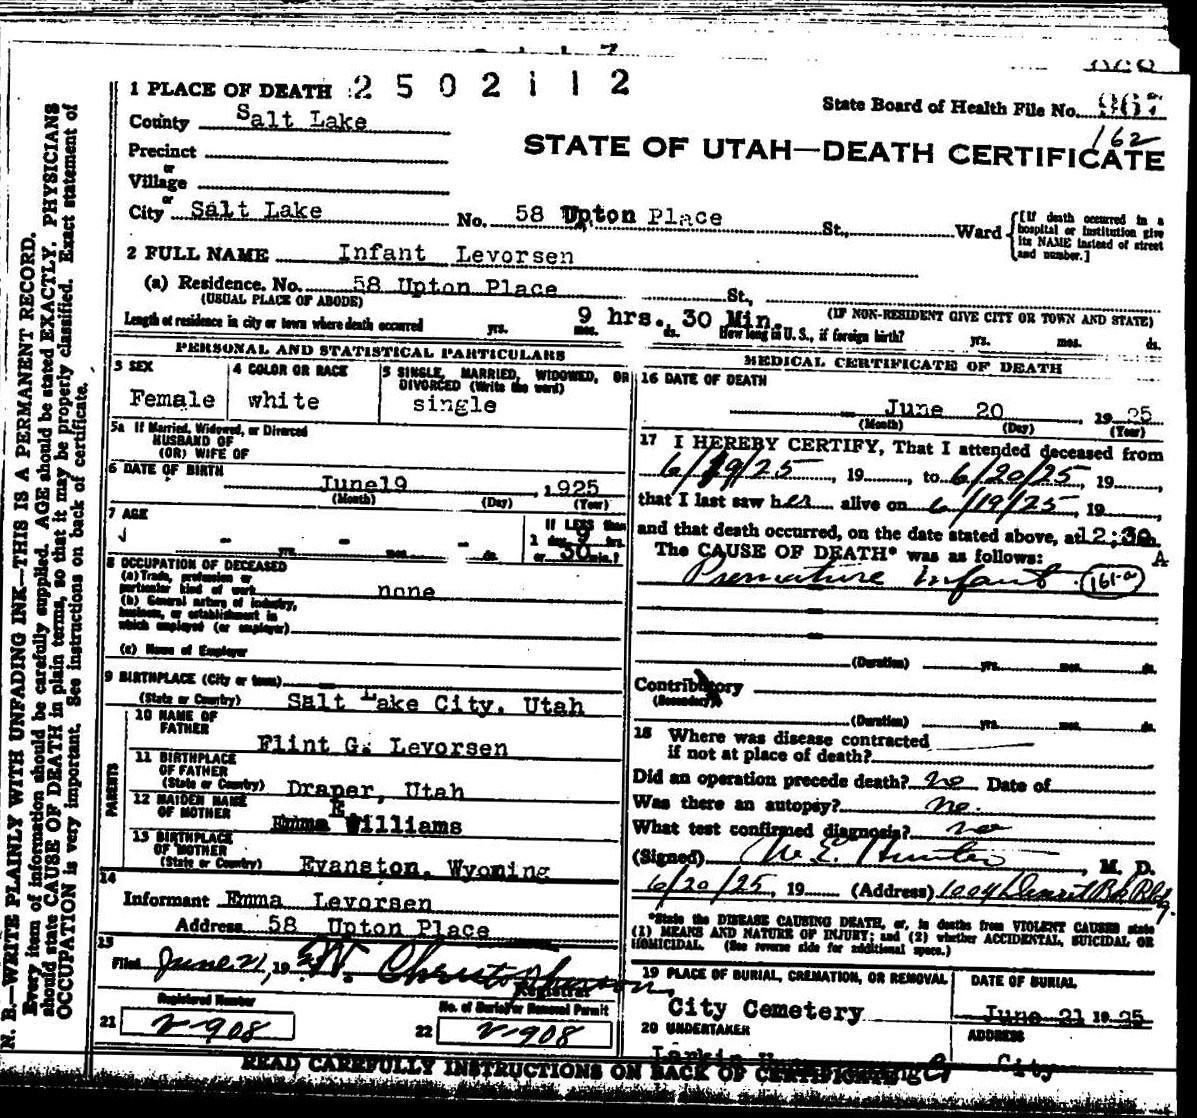 1 PLACE OF DEATH 2502112
State Board of Health File No. 967
162
County Salt Lake
STATE OF UTAH—DEATH CERTIFICATE
Precinct
or
Village
or
City Salt Lake No. 58 Upton Place St., Ward
[If death occurred in a hospital or institution give its NAME instead of street and number.]
2 FULL NAME Infant Levorsen
(a) Residence. No. 58 Upton Place St.,
(USUAL PLACE OF ABODE) (IF NON-RESIDENT GIVE CITY OR TOWN AND STATE)
Length of residence in city or town where death occurred yrs. mos. ds. 9 hrs. 30 Min. How long in U. S., if foreign birth? yrs. mos. ds.
PERSONAL AND STATISTICAL PARTICULARS
3 SEX 4 COLOR OR RACE 5 SINGLE, MARRIED, WIDOWED, OR DIVORCED (Write the word)
Female white single
5a If Married, Widowed, or Divorced
HUSBAND OF
(OR) WIFE OF
6 DATE OF BIRTH June 19, 1925
(Month) (Day) (Year)
7 AGE
yrs. mos. ds.
If LESS than
1 day 9 hrs.
or 30 min.?
8 OCCUPATION OF DECEASED
(a) Trade, profession or
particular kind of work none
(b) General nature of industry,
business, or establishment in
which employed (or employer)
(c) Name of Employer
9 BIRTHPLACE (City or town)
(State or Country) Salt Lake City, Utah
PARENTS
10 NAME OF
FATHER Flint G. Levorsen
11 BIRTHPLACE
OF FATHER
(State or Country) Draper, Utah
12 MAIDEN NAME
OF MOTHER Emma E Williams
13 BIRTHPLACE
OF MOTHER
(State or Country) Evanston, Wyoming
14
Informant Emma Levorsen
Address 58 Upton Place
15
Filed June 21, 19 W. Christopherson
Registrar
Registered Number No. of Burial or Removal Permit
21 V-908 22 V-908
MEDICAL CERTIFICATE OF DEATH
16 DATE OF DEATH
June 20 1925
(Month) (Day) (Year)
17 I HEREBY CERTIFY, That I attended deceased from
6/19/25, 19, to 6/20/25, 19,
that I last saw her alive on 6/19/25, 19,
and that death occurred, on the date stated above, at 12:30 m.
A
The CAUSE OF DEATH* was as follows:
Premature infant 161-a
(Duration) yrs. mos. ds.
Contributory
(Secondary)
(Duration) yrs. mos. ds.
18 Where was disease contracted
if not at place of death?
Did an operation precede death? no Date of
Was there an autopsy? no.
What test confirmed diagnosis? no
(Signed) M. E. Hunter, M. D.
6/20/25, 19 (Address) 1004 Deseret Bk Bldg.
*State the DISEASE CAUSING DEATH, or, in deaths from VIOLENT CAUSES state
(1) MEANS AND NATURE OF INJURY; and (2) whether ACCIDENTAL, SUICIDAL OR
HOMICIDAL. (See reverse side for additional space.)
19 PLACE OF BURIAL, CREMATION, OR REMOVAL DATE OF BURIAL
City Cemetery June 21 1925
20 UNDERTAKER ADDRESS
Larkin City
READ CAREFULLY INSTRUCTIONS ON BACK OF CERTIFICATE
N. B.—WRITE PLAINLY WITH UNFADING INK—THIS IS A PERMANENT RECORD.
Every item of information should be carefully supplied. AGE should be stated EXACTLY. PHYSICIANS
should state CAUSE OF DEATH in plain terms, so that it may be properly classified. Exact statement of
OCCUPATION is very important. See instructions on back of certificate.